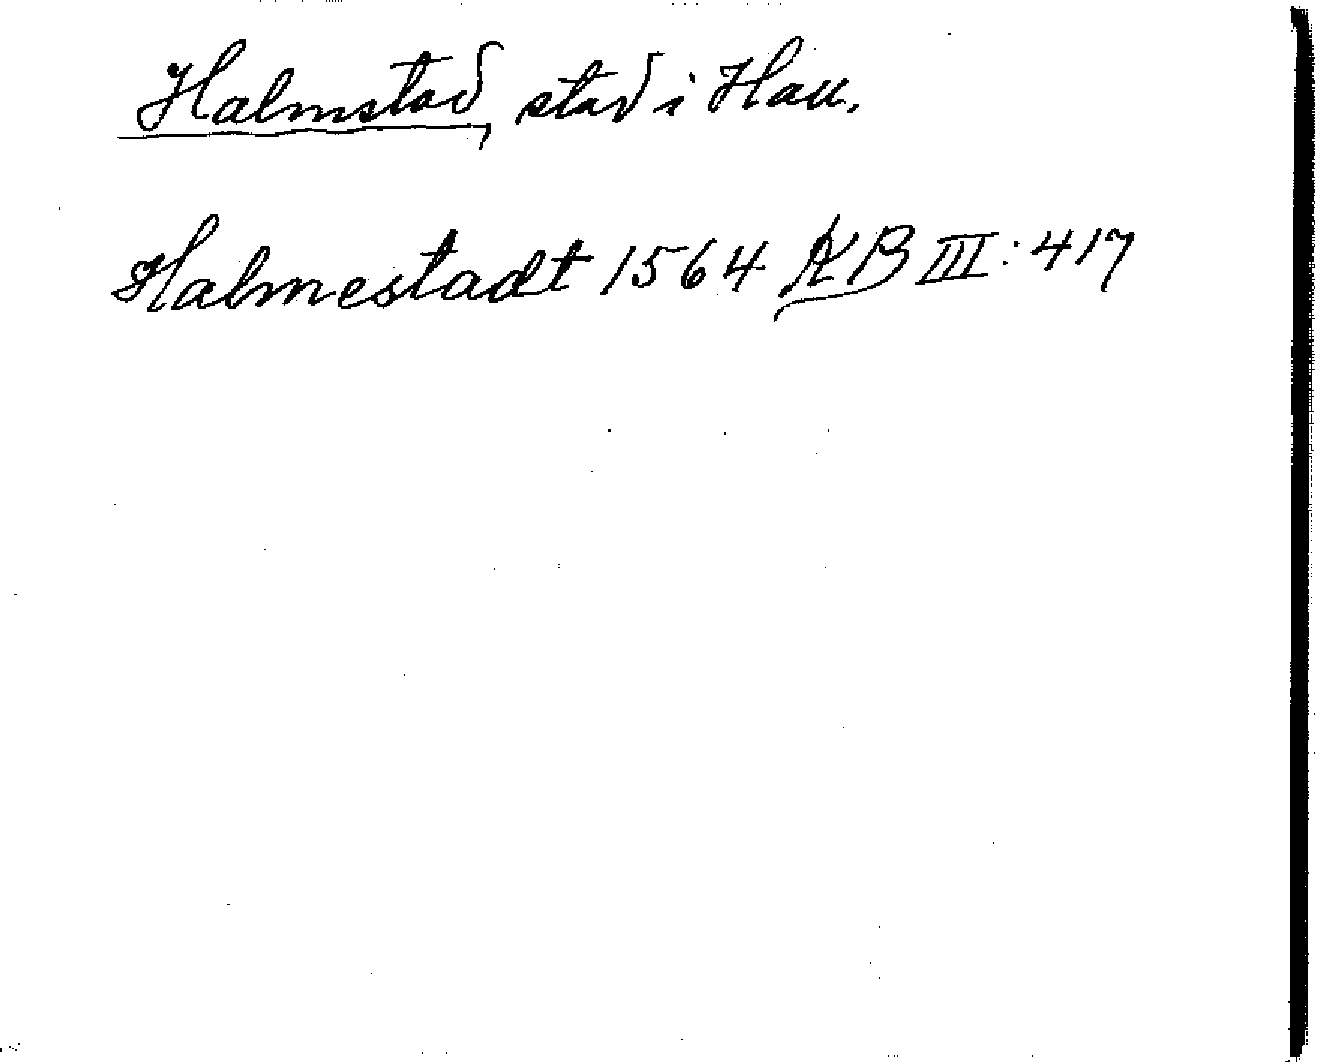 Halmstad, stad i Hall.
Halmestadt 1564 KB III:417